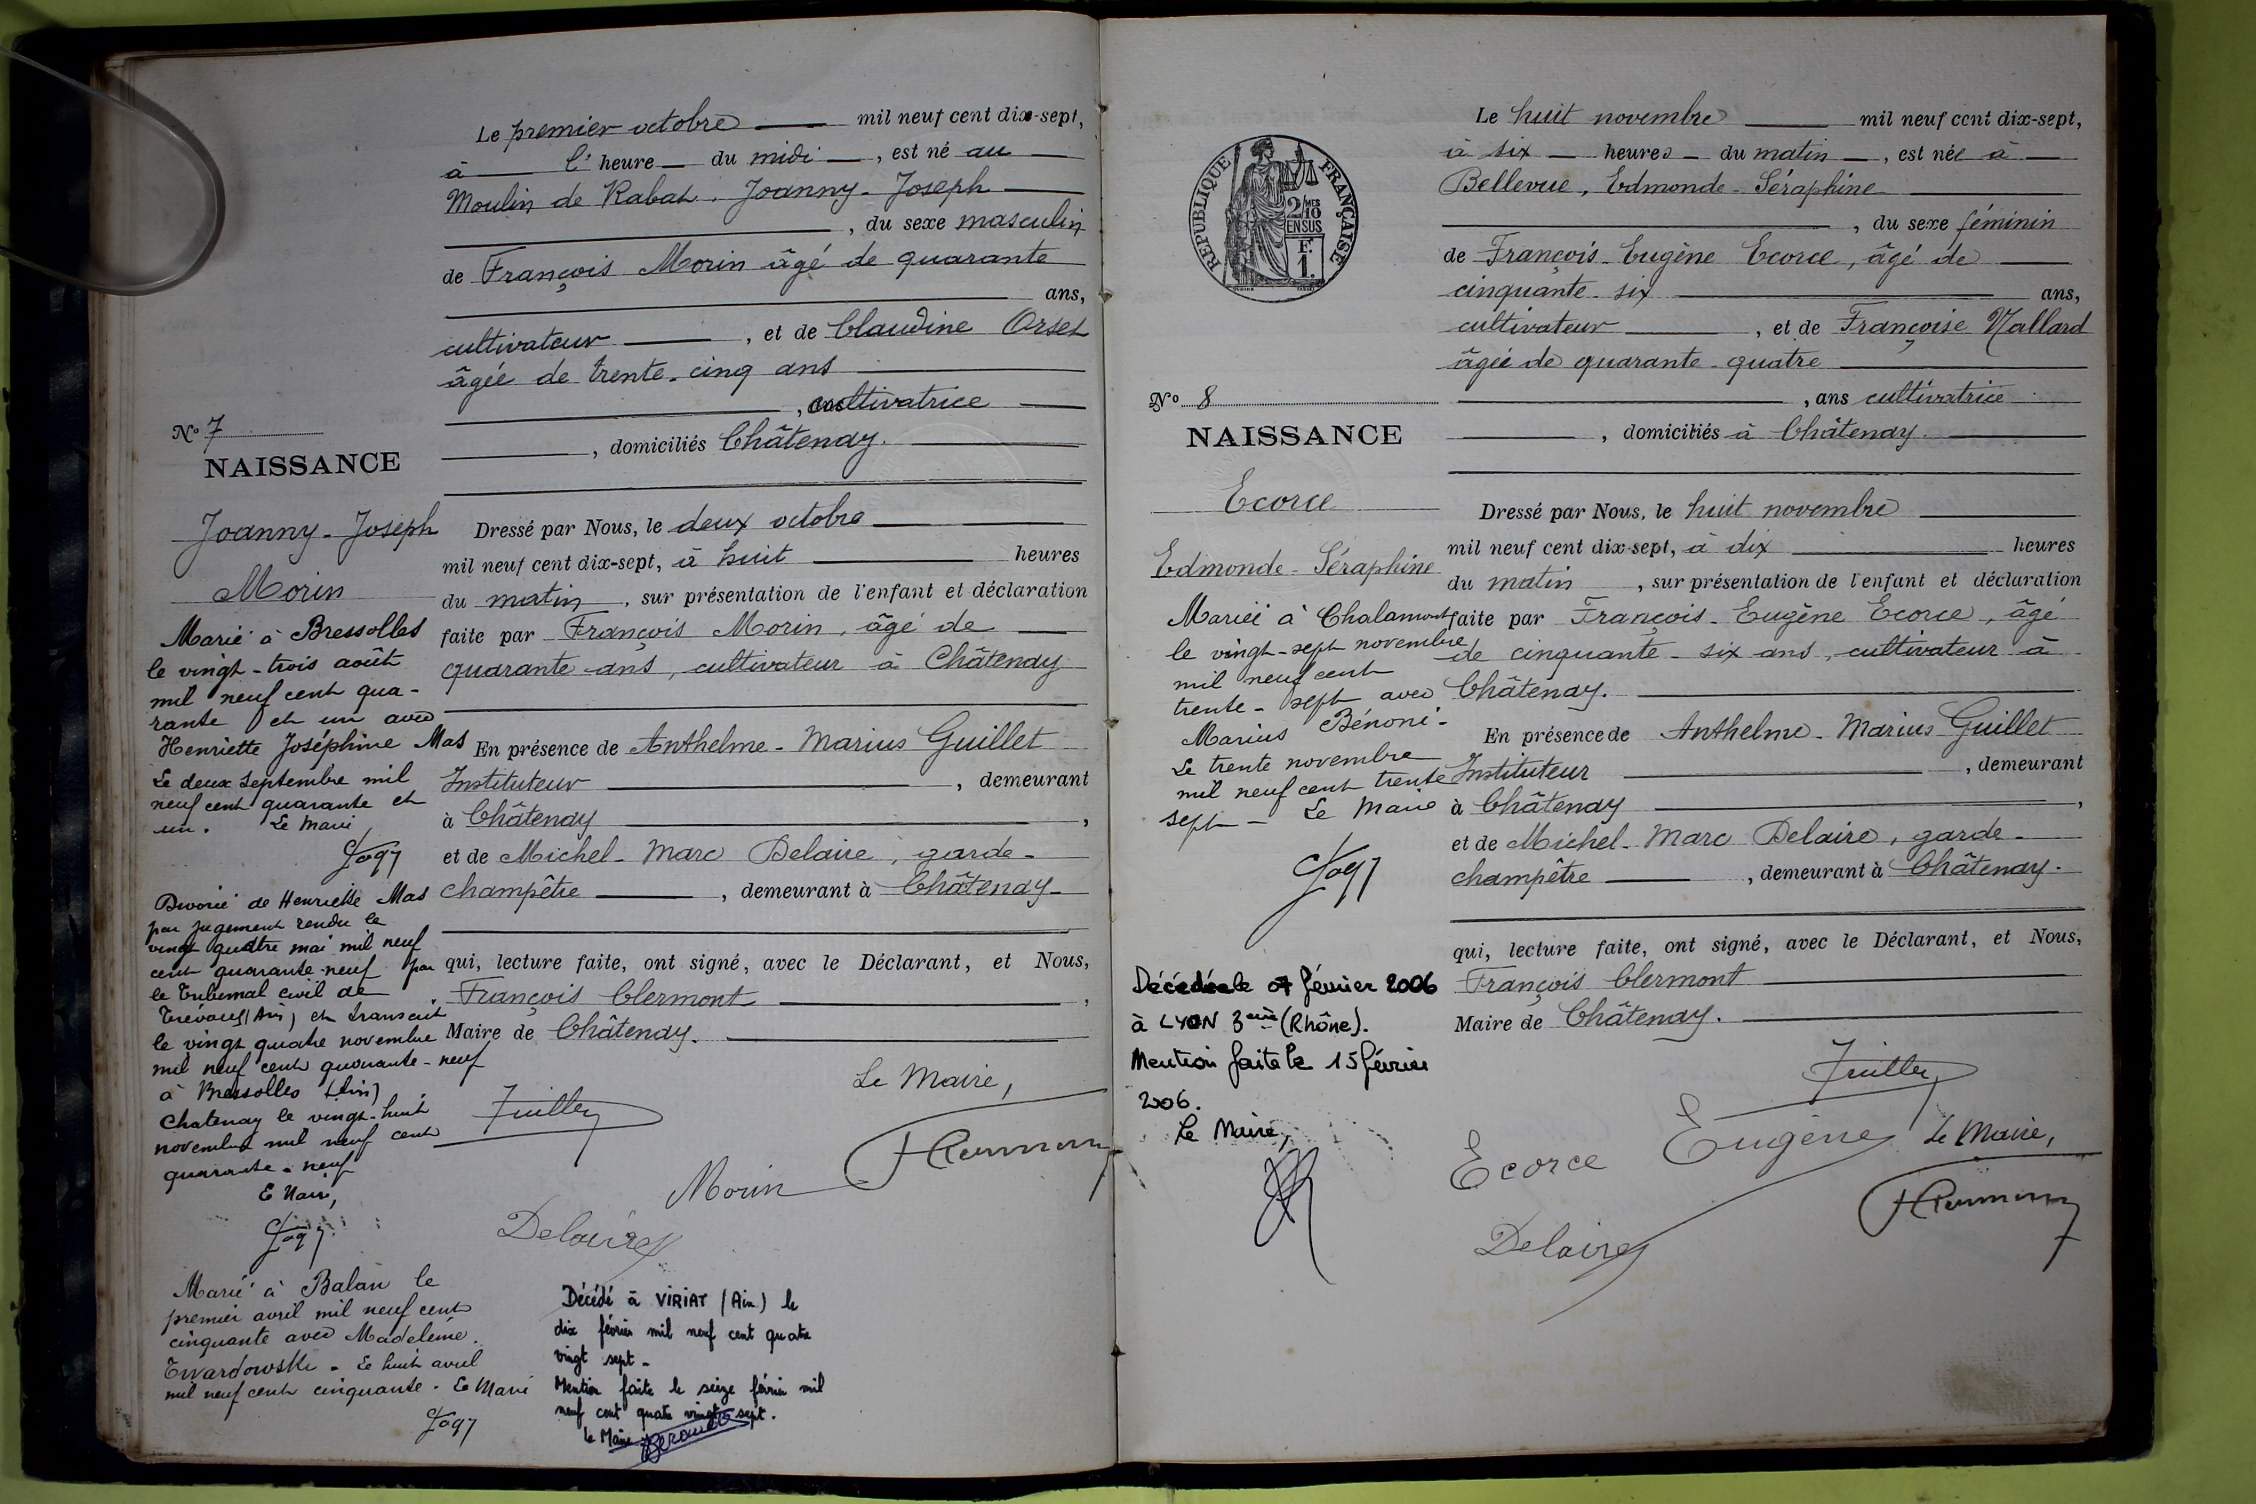 Le premier octobre mil neuf cent dix-sept,
à l'heure du midi, est né au
Moulin de Rabat, Joanny-Joseph
, du sexe masculin
de François Morin âgé de quarante
ans,
cultivateur, et de Claudine Orset
âgée de trente-cinq ans
, cultivatrice
, domiciliés Châtenay.
Dressé par Nous, le deux octobre
mil neuf cent dix-sept, à huit heures
du matin, sur présentation de l'enfant et déclaration
faite par François Morin, âgé de
quarante ans, cultivateur à Châtenay
En présence de Anthelme-Marius Guillet
Instituteur, demeurant
à Châtenay,
et de Michel-Marc Delaire, garde-
champêtre, demeurant à Châtenay-
qui, lecture faite, ont signé, avec le Déclarant, et Nous,
François Clermont,
Maire de Châtenay.
Le Maire,
Morin
Delaire
Nº 7
NAISSANCE
Joanny-Joseph
Morin
Marié à Bressolles
le vingt-trois août
mil neuf cent qua-
rante et un avec
Henriette Joséphine Mas
Le deux septembre mil
neuf cent quarante et
un. Le Maire
Divorcé de Henriette Mas
par jugement rendu le
vingt quatre mai mil neuf
cent quarante-neuf par
le Tribunal civil de
Trévoux (Ain) et transcrit
le vingt quatre novembre
mil neuf cent quarante-neuf
à Bressolles (Ain)
Chatenay le vingt-huit
novembre mil neuf cent
quarante-neuf
Le Maire,
Marié à Balan le
premier avril mil neuf cent
cinquante avec Madeleine
Twardowski - Le huit avril
mil neuf cent cinquante. Le Maire
Décédé à VIRIAT (Ain) le
dix février mil neuf cent quatre
vingt sept -
Mention faite le seize février mil
neuf cent quatre vingt sept.
le Maire
RÉPUBLIQUE FRANÇAISE
2/10 MES
EN SUS
F.
1.
Le huit novembre mil neuf cent dix-sept,
à six heures du matin, est née à
Bellevue, Edmonde-Séraphine
, du sexe féminin
de François-Eugène Ecorce, âgé de
cinquante-six ans,
cultivateur, et de Françoise Vallard
âgée de quarante-quatre
, ans cultivatrice
, domiciliés à Châtenay.
Dressé par Nous, le huit novembre
mil neuf cent dix-sept, à dix heures
du matin, sur présentation de l'enfant et déclaration
faite par François-Eugène Ecorce, âgé
de cinquante-six ans, cultivateur à
Châtenay.
En présence de Anthelme-Marius Guillet
Instituteur, demeurant
à Châtenay,
et de Michel-Marc Delaire, garde-
champêtre, demeurant à Châtenay.
qui, lecture faite, ont signé, avec le Déclarant, et Nous,
François Clermont
Maire de Châtenay.
Ecorce Eugène Le Maire,
Delaire
Nº 8
NAISSANCE
Ecorce
Edmonde-Séraphine
Mariée à Chalamont
le vingt-sept novembre
mil neuf cent
trente-sept avec
Marius Bénoni-
Le trente novembre
mil neuf cent trente
sept - Le Maire
Décédée le 07 février 2006
à LYON 3ème (Rhône).
Mention faite le 15 février
2006.
Le Maire,